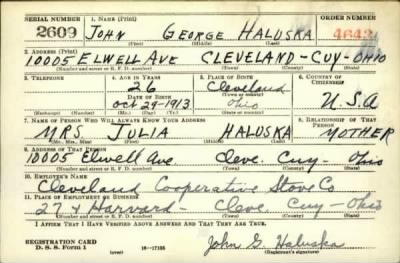 SERIAL NUMBER 1. NAME (Print) ORDER NUMBER
2609 JOHN GEORGE HALUSKA 4643
(First) (Middle) (Last)
2. ADDRESS (Print)
10005 ELWELL AVE CLEVELAND - CUY - OHIO
(Number and street or R. F. D. number) (Town) (County) (State)
3. TELEPHONE 4. AGE IN YEARS 5. PLACE OF BIRTH 6. COUNTRY OF CITIZENSHIP
26 Cleveland
DATE OF BIRTH (Town or county)
Oct 29-1913 Ohio U.S.A
(Exchange) (Number) (Mo.) (Day) (Yr.) (State or country)
7. NAME OF PERSON WHO WILL ALWAYS KNOW YOUR ADDRESS 8. RELATIONSHIP OF THAT PERSON
MRS. JULIA HALUSKA MOTHER
(Mr., Mrs., Miss) (First) (Middle) (Last)
9. ADDRESS OF THAT PERSON
10005 Elwell Ave. Cleve. Cuy - Ohio
(Number and street or R. F. D. number) (Town) (County) (State)
10. EMPLOYER'S NAME
Cleveland Cooperative Stove Co
11. PLACE OF EMPLOYMENT OR BUSINESS
27 + Harvard - Cleve. Cuy - Ohio
(Number and street or R. F. D. number) (Town) (County) (State)
I AFFIRM THAT I HAVE VERIFIED ABOVE ANSWERS AND THAT THEY ARE TRUE.
REGISTRATION CARD
D. S. S. Form 1 (over) 16—17105 John G. Haluska
(Registrant's signature)